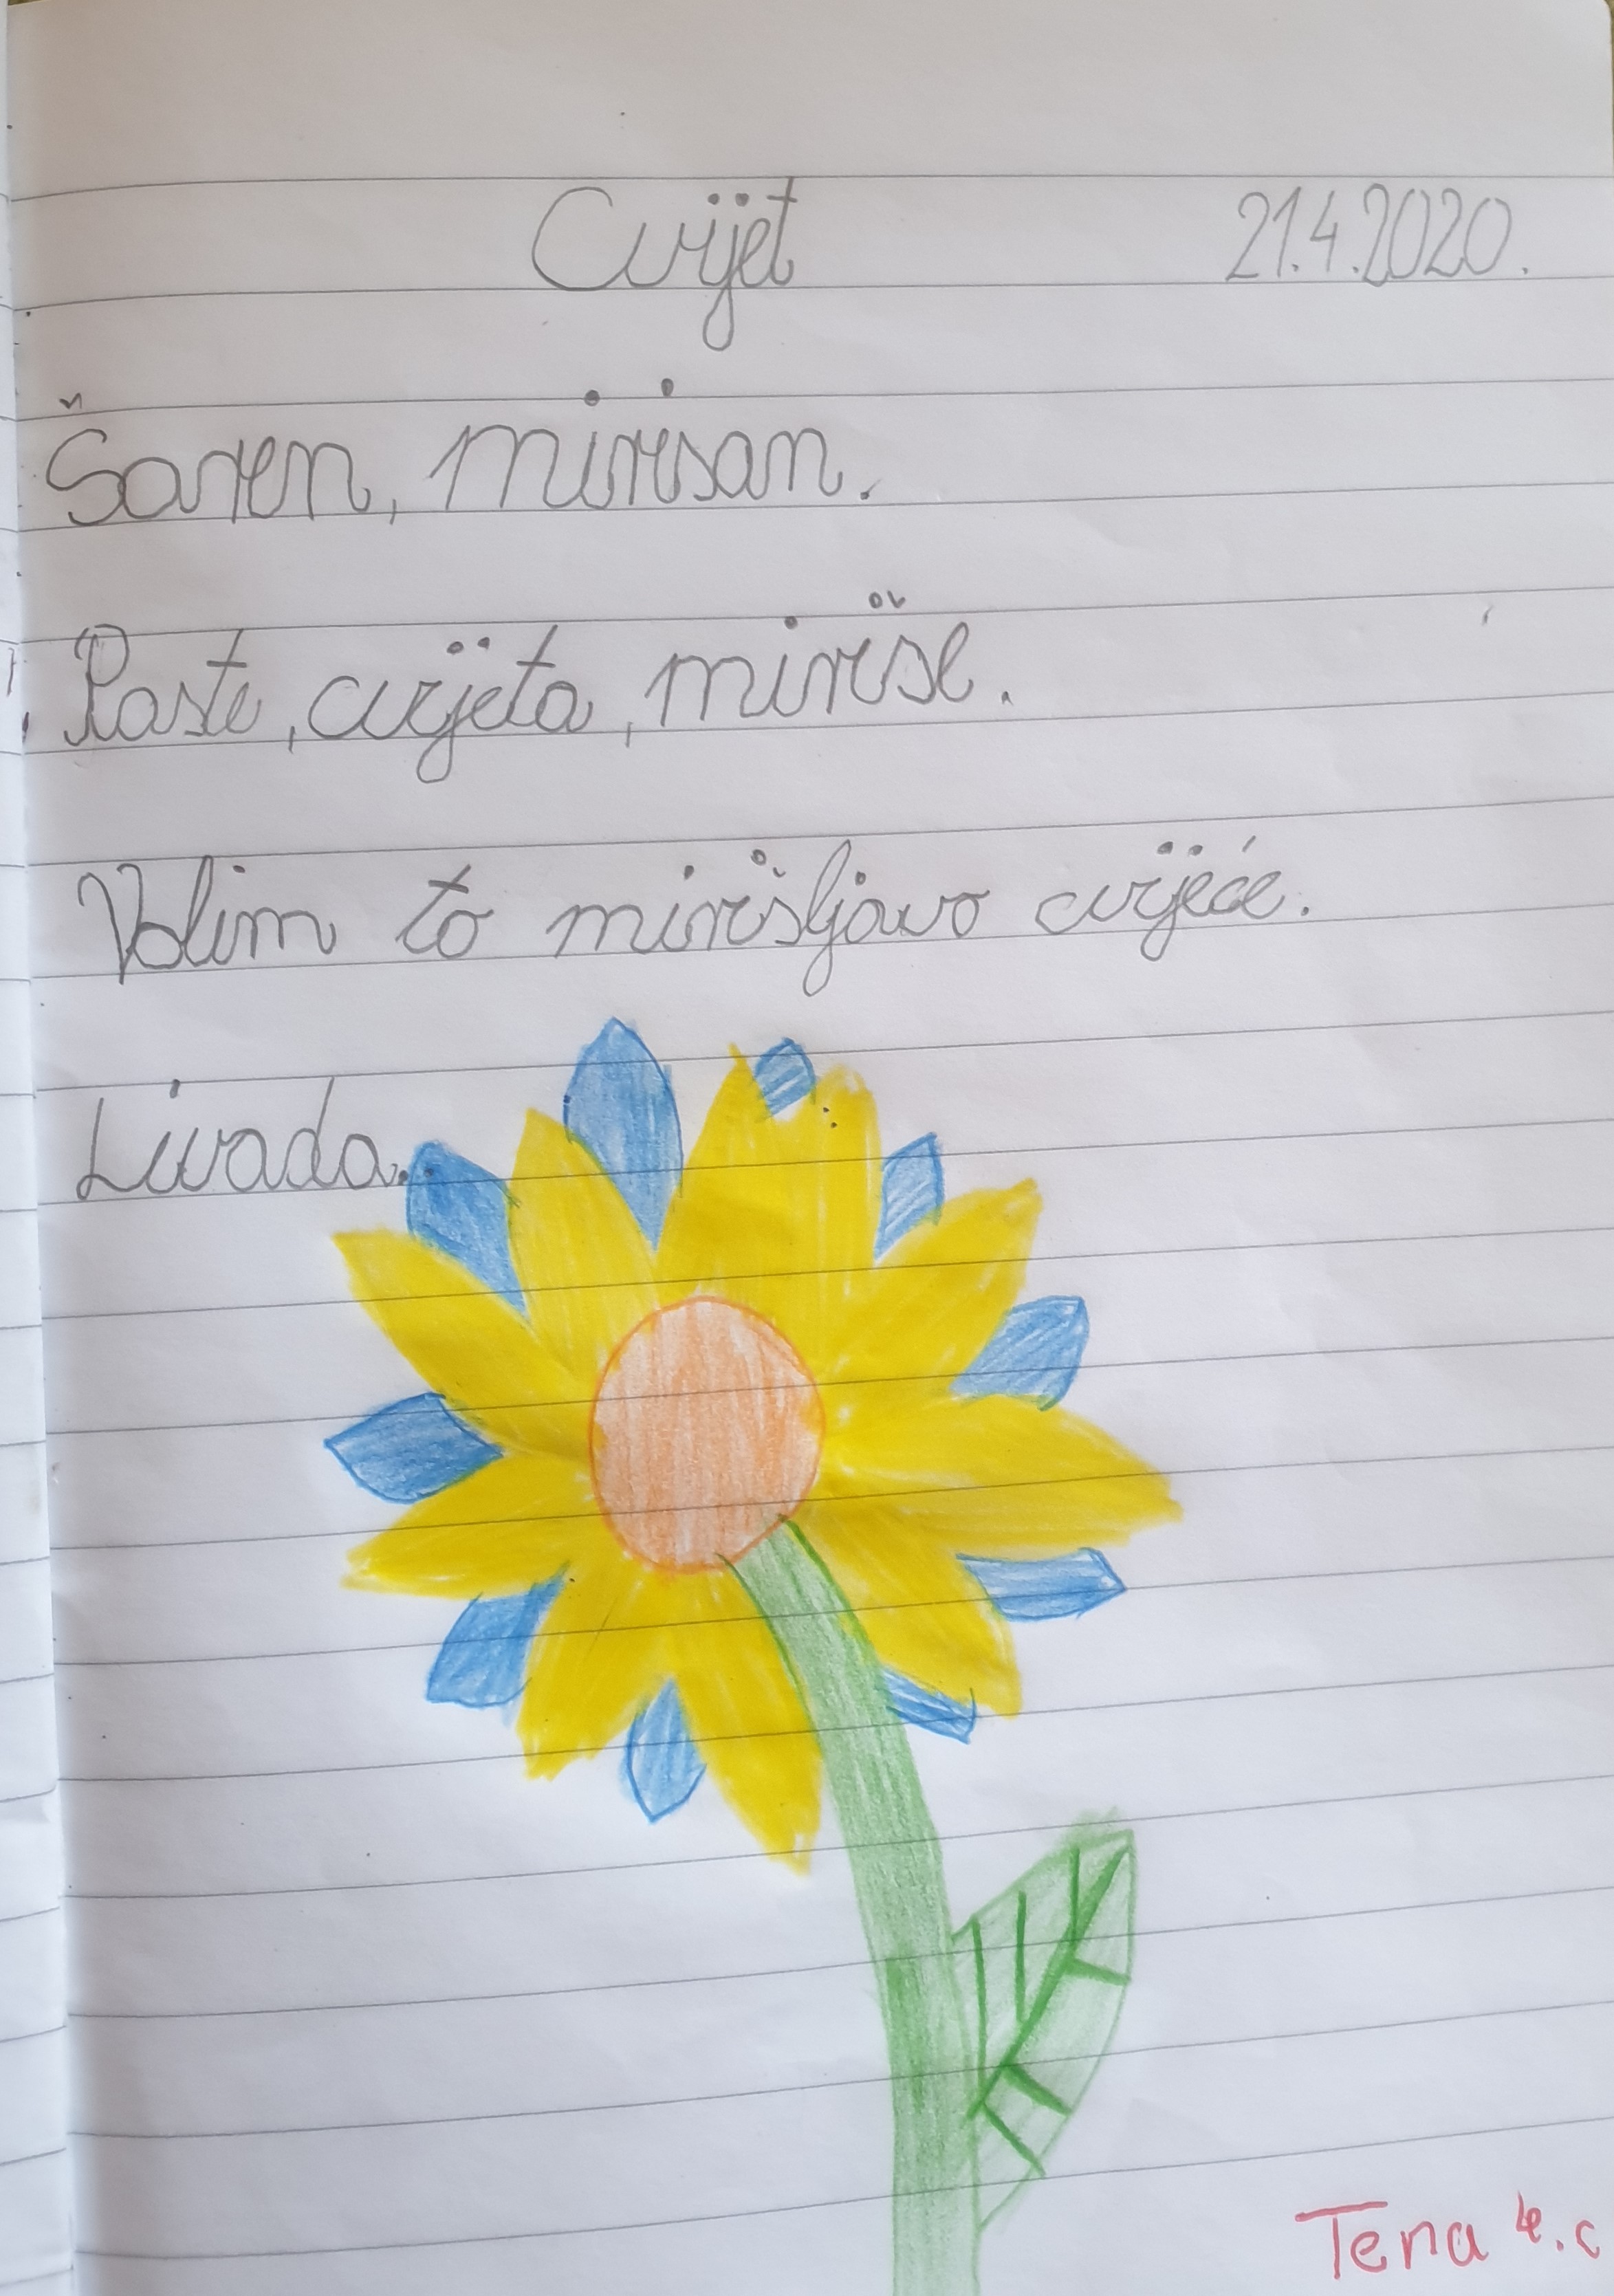 Cvijet 21.4.2020.
Šaren, mirisan.
Raste, cvjeta, miriše.
Volim to mirišljavo cvijeće.
Livada.
Tena 4.c